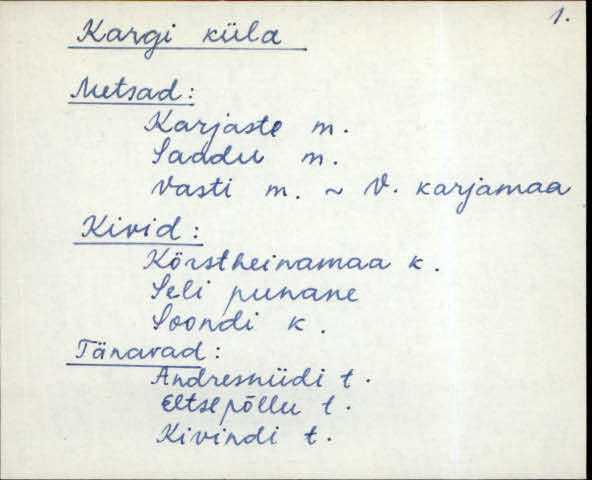 1.
Kargi küla
Metsad:
Karjaste m.
Saadu m.
Vasti m. ~ V. karjamaa
Kivid:
Kõrstheinamaa k.
Seli punane
Soondi k.
Tänavad:
Andresniidi t.
Eetsepõllu t.
Kivindi t.